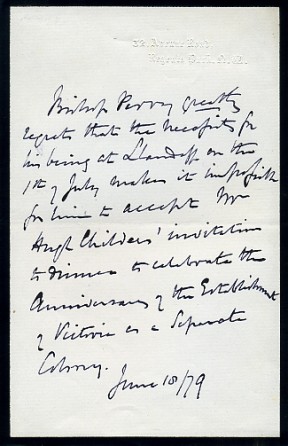 32 Avenue Road,
Regents Park. N.W.
Bishop Perry greatly
regrets that the necessity for
his being at Llandaff on the
1st of July makes it impossible
for him to accept Mr
Hugh Childers' invitation
to dinner to celebrate the
Anniversary of the Establishment
of Victoria as a Separate
Colony.
June 18/79